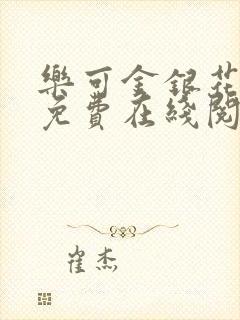 樂可金銀花
免費在綫閱
崔杰